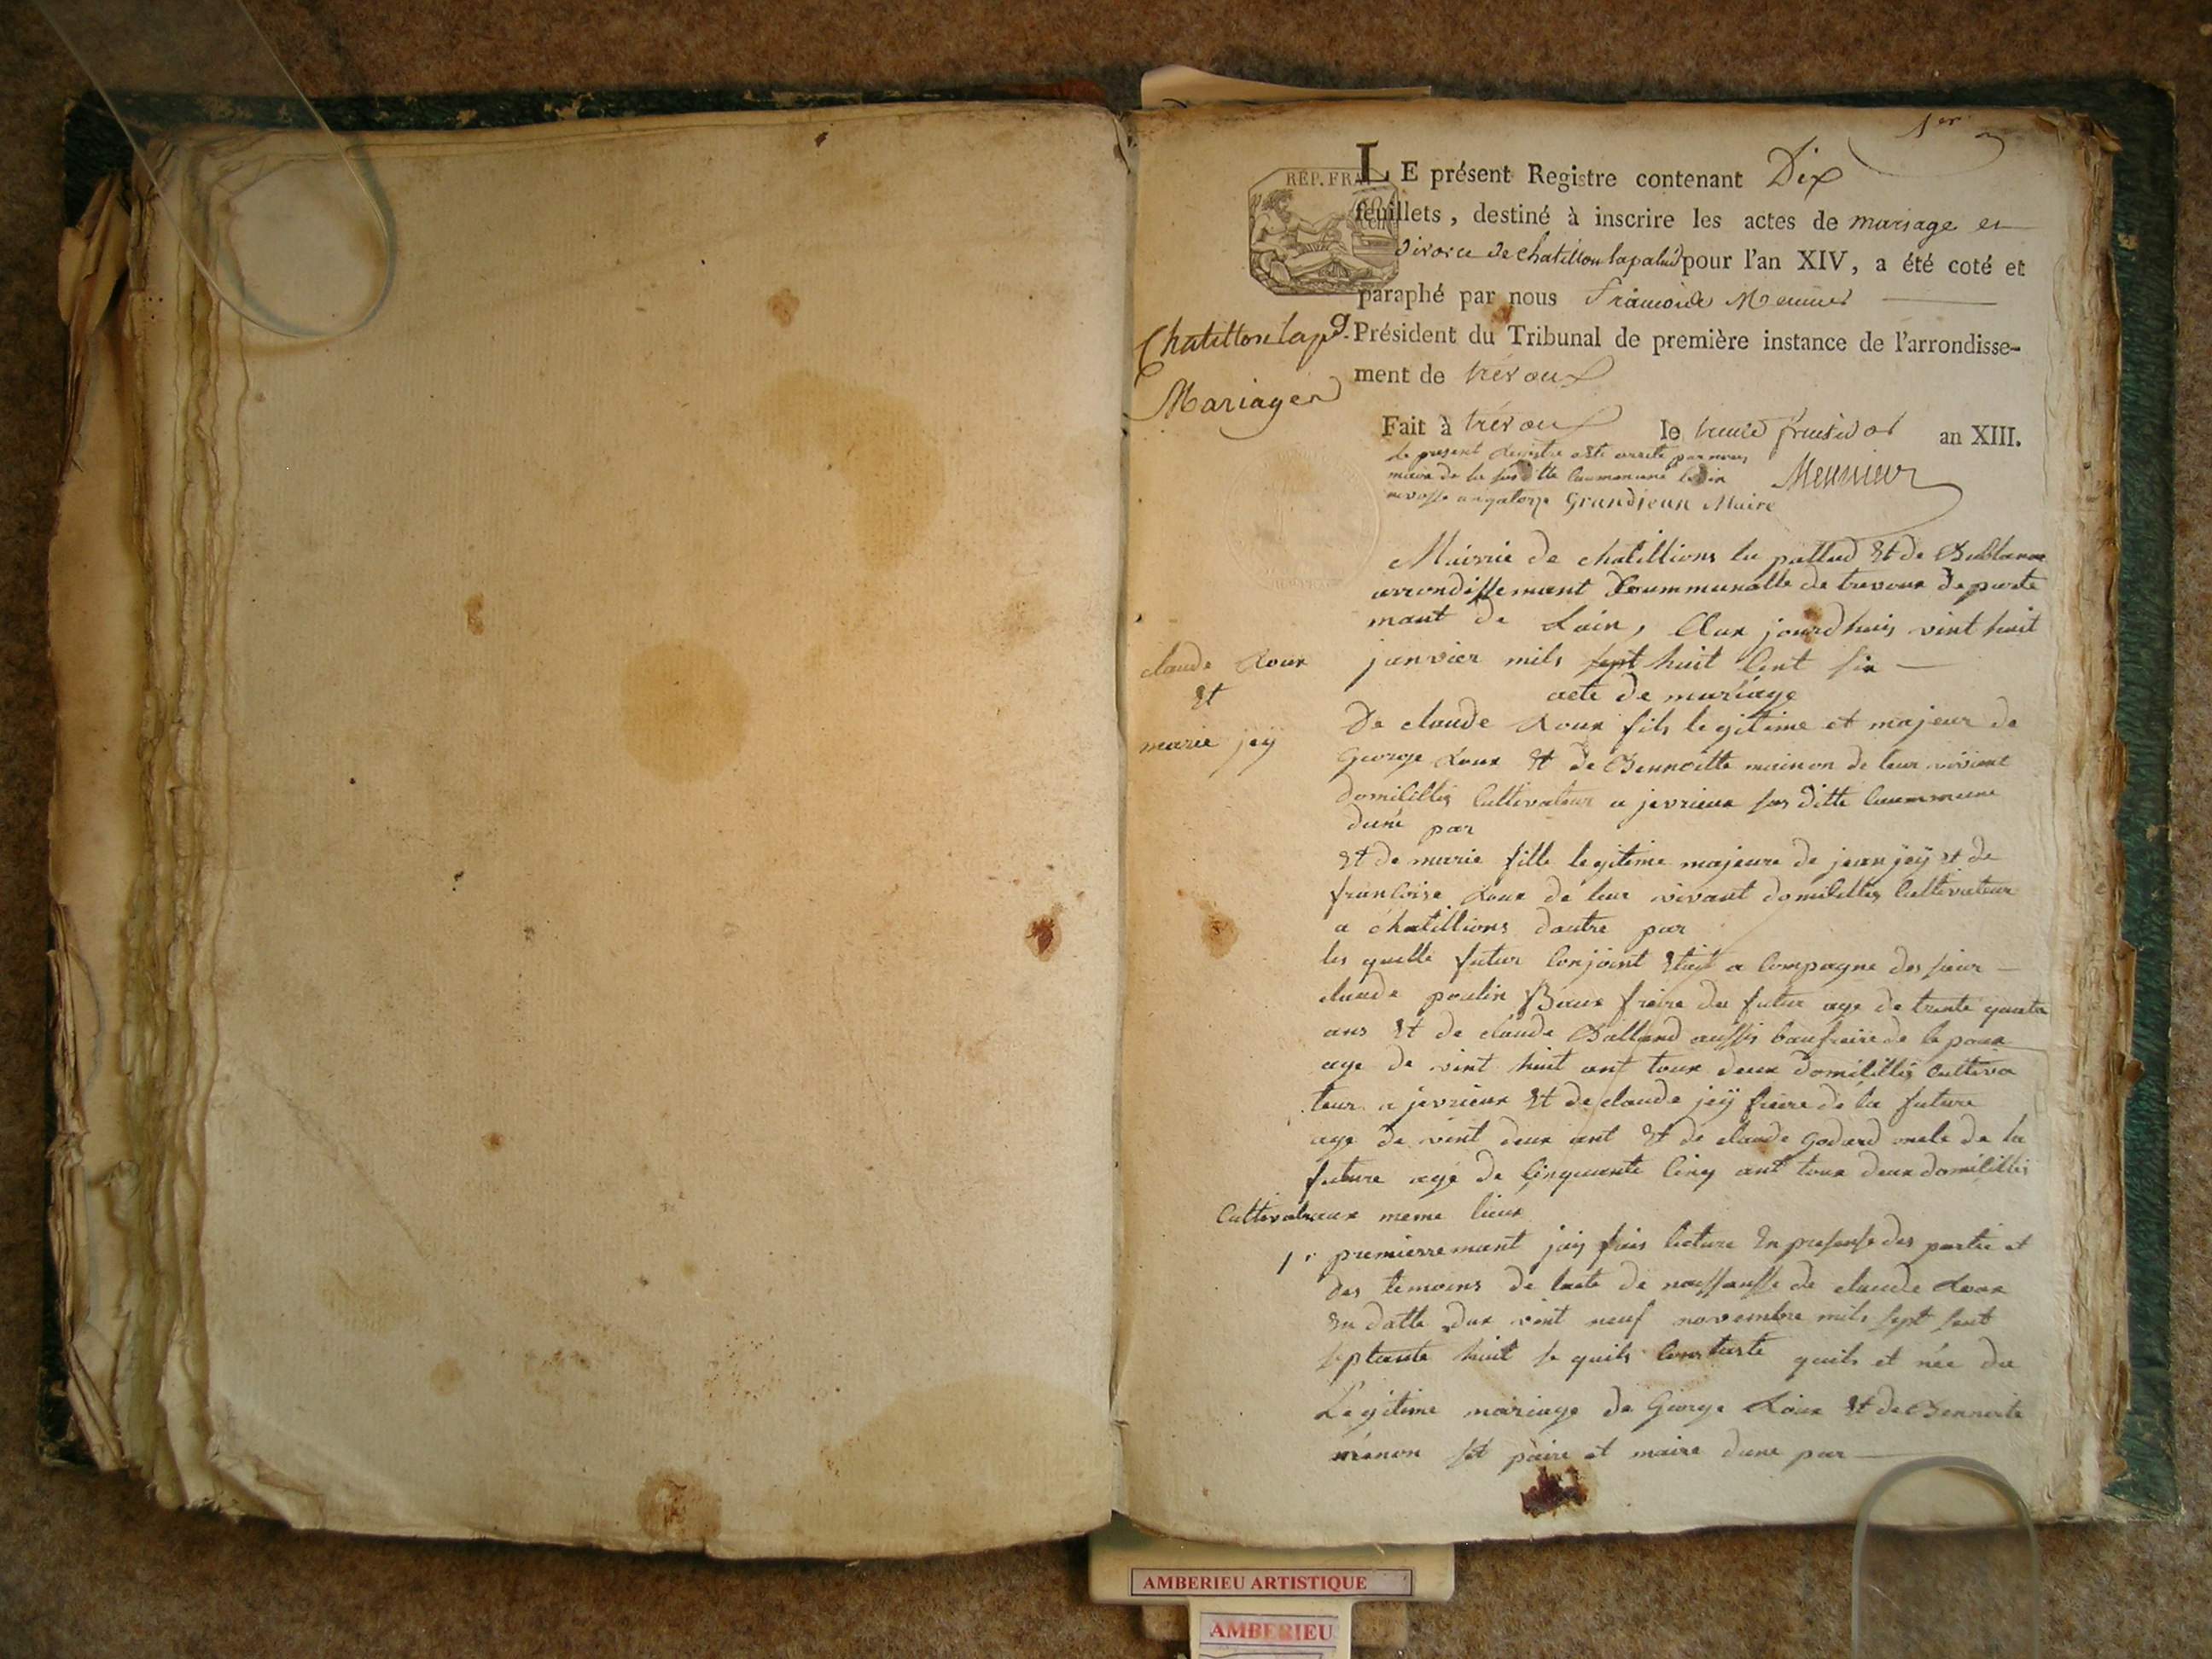 1er
REP. FRA
LE présent Registre contenant Dix
feuillets, destiné à inscrire les actes de mariage et
divorce de chatillon lapalud pour l'an XIV, a été coté et
paraphé par nous françois Meunier
Président du Tribunal de première instance de l'arrondisse-
ment de trévoux
Chatillon lapd.
Mariages
Fait à trévoux le trente fructidor an XIII.
le present Registre a été arreté par nous
maire de la sus ditte Commune le dix
an quatorze Grandjean Maire
Meunier
Mairie de chatillions la pallud Et de Bublanne
arrondissement Coummunalle de trevoux departe
mant de Lain, Aux jourdhuis vint huit
janvier mils sept huit Cent six
acte de mariage
claude Roux
Et
marie jeÿ
De claude Roux fils legitime et majeur de
George Roux Et de Bennoitte mainon de leur vivant
domicilliés Cultivateur a jevrieux sus ditte Coummune
dune par
Et de marie fille legitime majeure de jean jeÿ et de
francoise Roux de leur vivant domicilliés Cultivateur
a chatillions dautre par
les quelle futur Conjoint Etait a Compagne des sieur
claude poulin Baux fraire du futur age de trente quatre
ans Et de claude Balland aussis baufraire de lepoux
age de vint huit ant toux deux domicilliés Cultiva
teur a jevrieux Et de claude jeÿ fraire de la future
age de vint deux ant Et de claude Godard oncle de la
future agé de Cinquante Cinq ant toux deux domicilliés
Cultivateur aux meme lieux
1° premierremant jaiy fais lecture En presense des partie et
des temoins de lacte de naissansse de claude Roux
En datte dux vint neuf novembre mils sept sent
septante huit se quils Constaste quils et née du
Legitime mariage de George Roux Et de Bennoite
menon set paire et maire dune par
AMBERIEU ARTISTIQUE
AMBERIEU